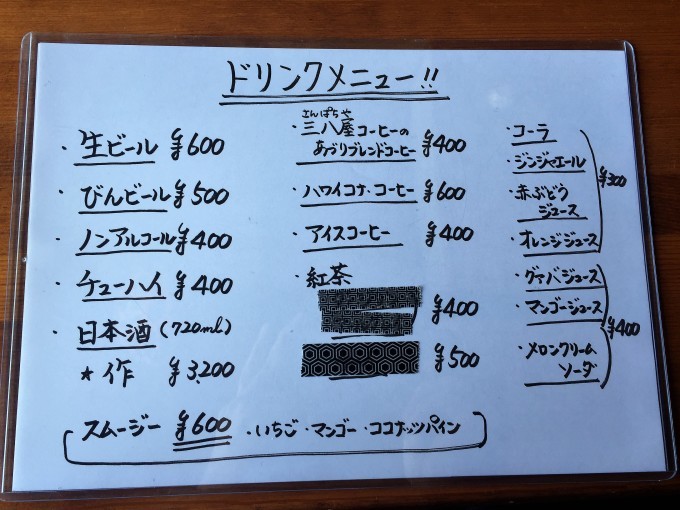 ドリンクメニュー!!
・生ビール ¥600
・びんビール ¥500
・ノンアルコール ¥400
・チューハイ ¥400
・日本酒(720ml)
★作 ¥3,200
さんぱちや
・三八屋コーヒーの
あづりブレンドコーヒー ¥400
・ハワイコナ・コーヒー ¥600
・アイスコーヒー ¥400
・紅茶
¥400
¥500
・コーラ
・ジンジャエール
・赤ぶどう
ジュース
・オレンジジュース
¥300
・グァバジュース
・マンゴージュース
・メロンクリーム
ソーダ
¥400
スムージー ¥600 ・いちご ・マンゴー ・ココナッツパイン